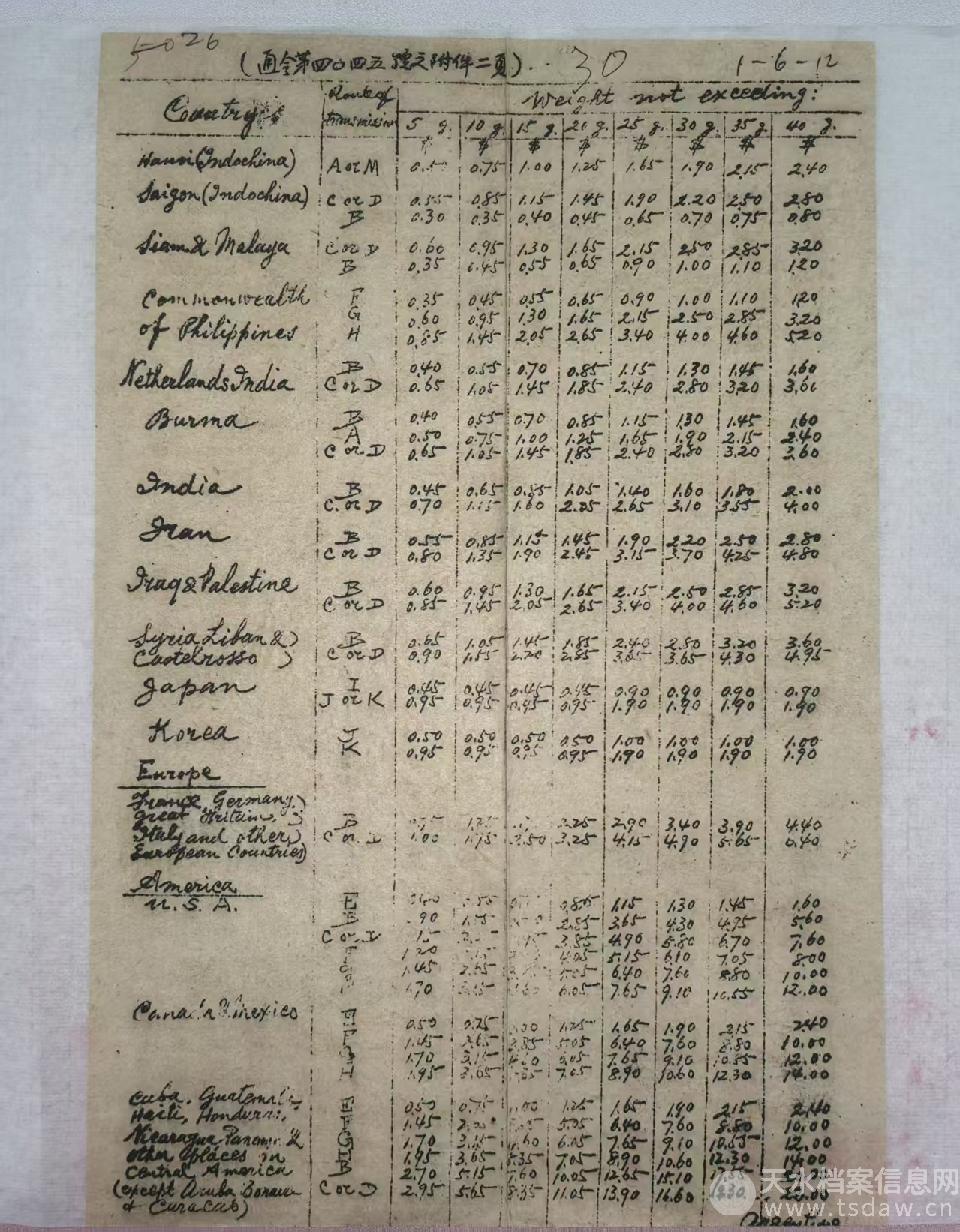 5026
(通令第四〇四五號之附件二頁)..30 1-6-12
Country Route of transmission Weight not exceeding:
5 g. 10 g. 15 g. 20 g. 25 g. 30 g. 35 g. 40 g.
$ $ $ $ $ $ $ $
Hanoi (Indochina) A or M 0.50 0.75 1.00 1.25 1.65 1.90 2.15 2.40
Saigon (Indochina) C or D 0.55 0.85 1.15 1.45 1.90 2.20 2.50 2.80
B 0.30 0.35 0.40 0.45 0.65 0.70 0.75 0.80
Siam & Malaya C or D 0.60 0.95 1.30 1.65 2.15 2.50 2.85 3.20
B 0.35 0.45 0.55 0.65 0.90 1.00 1.10 1.20
Commonwealth F 0.35 0.45 0.55 0.65 0.90 1.00 1.10 1.20
G 0.60 0.95 1.30 1.65 2.15 2.50 2.85 3.20
of Philippines H 0.85 1.45 2.05 2.65 3.40 4.00 4.60 5.20
B 0.40 0.55 0.70 0.85 1.15 1.30 1.45 1.60
Netherlands India C or D 0.65 1.05 1.45 1.85 2.40 2.80 3.20 3.60
Burma B 0.40 0.55 0.70 0.85 1.15 1.30 1.45 1.60
A 0.50 0.75 1.00 1.25 1.65 1.90 2.15 2.40
C or D 0.65 1.05 1.45 1.85 2.40 2.80 3.20 3.60
India B 0.45 0.65 0.85 1.05 1.40 1.60 1.80 2.00
C or D 0.70 1.15 1.60 2.05 2.65 3.10 3.55 4.00
Iran B 0.55 0.85 1.15 1.45 1.90 2.20 2.50 2.80
C or D 0.80 1.35 1.90 2.45 3.15 3.70 4.25 4.80
Iraq & Palestine B 0.60 0.95 1.30 1.65 2.15 2.50 2.85 3.20
C or D 0.85 1.45 2.05 2.65 3.40 4.00 4.60 5.20
Syria, Liban & ) B 0.65 1.05 1.45 1.85 2.40 2.80 3.20 3.60
Castelrosso ) C or D 0.90 1.55 2.20 2.85 3.65 3.65 4.30 4.95
Japan I 0.45 0.45 0.45 0.45 0.90 0.90 0.90 0.90
J or K 0.95 0.95 0.95 0.95 1.90 1.90 1.90 1.90
Korea J 0.50 0.50 0.50 0.50 1.00 1.00 1.00 1.00
K 0.95 0.95 0.95 0.95 1.90 1.90 1.90 1.90
Europe
France, Germany, )
Great Britain, ) B 2.25 2.90 3.40 3.90 4.40
Italy and other ) C or D 1.00 1.75 2.50 3.25 4.15 4.90 5.65 6.40
European Countries)
America
U. S. A. E 0.85 1.15 1.30 1.45 1.60
B .90 2.85 3.65 4.30 4.95 5.60
C or D 3.85 4.90 5.80 6.70 7.60
1.20 4.05 5.15 6.10 7.05 8.00
1.45 2.65 5.05 6.40 7.60 8.80 10.00
.70 6.05 7.65 9.10 10.55 12.00
Canada & Mexico 0.50 0.75 .00 1.25 1.65 1.90 2.15 2.40
1.45 2.65 3.85 5.05 6.40 7.60 8.80 10.00
1.70 3.15 4.60 6.05 7.65 9.10 10.55 12.00
I 1.95 3.65 .35 7.05 8.90 10.60 12.30 14.00
Cuba, Guatemala, 0.50 0.75 1.00 1.25 1.65 1.90 2.15 2.40
Haiti, Honduras, 1.45 5.05 6.40 7.60 8.80 10.00
Nicaragua, Panama & G 1.70 3.15 .60 6.15 7.65 9.10 10.55 12.00
other places in I 1.95 3.65 5.35 7.05 8.90 10.60 12.30 14.00
Central America A 2.70 5.15 7.60 10.05 12.65 15.10
(except Aruba, Bonair C or D 2.95 5.65 8.35 11.05 13.90 16.60
& Curacao)
天水档案信息网
www.tsdaw.com